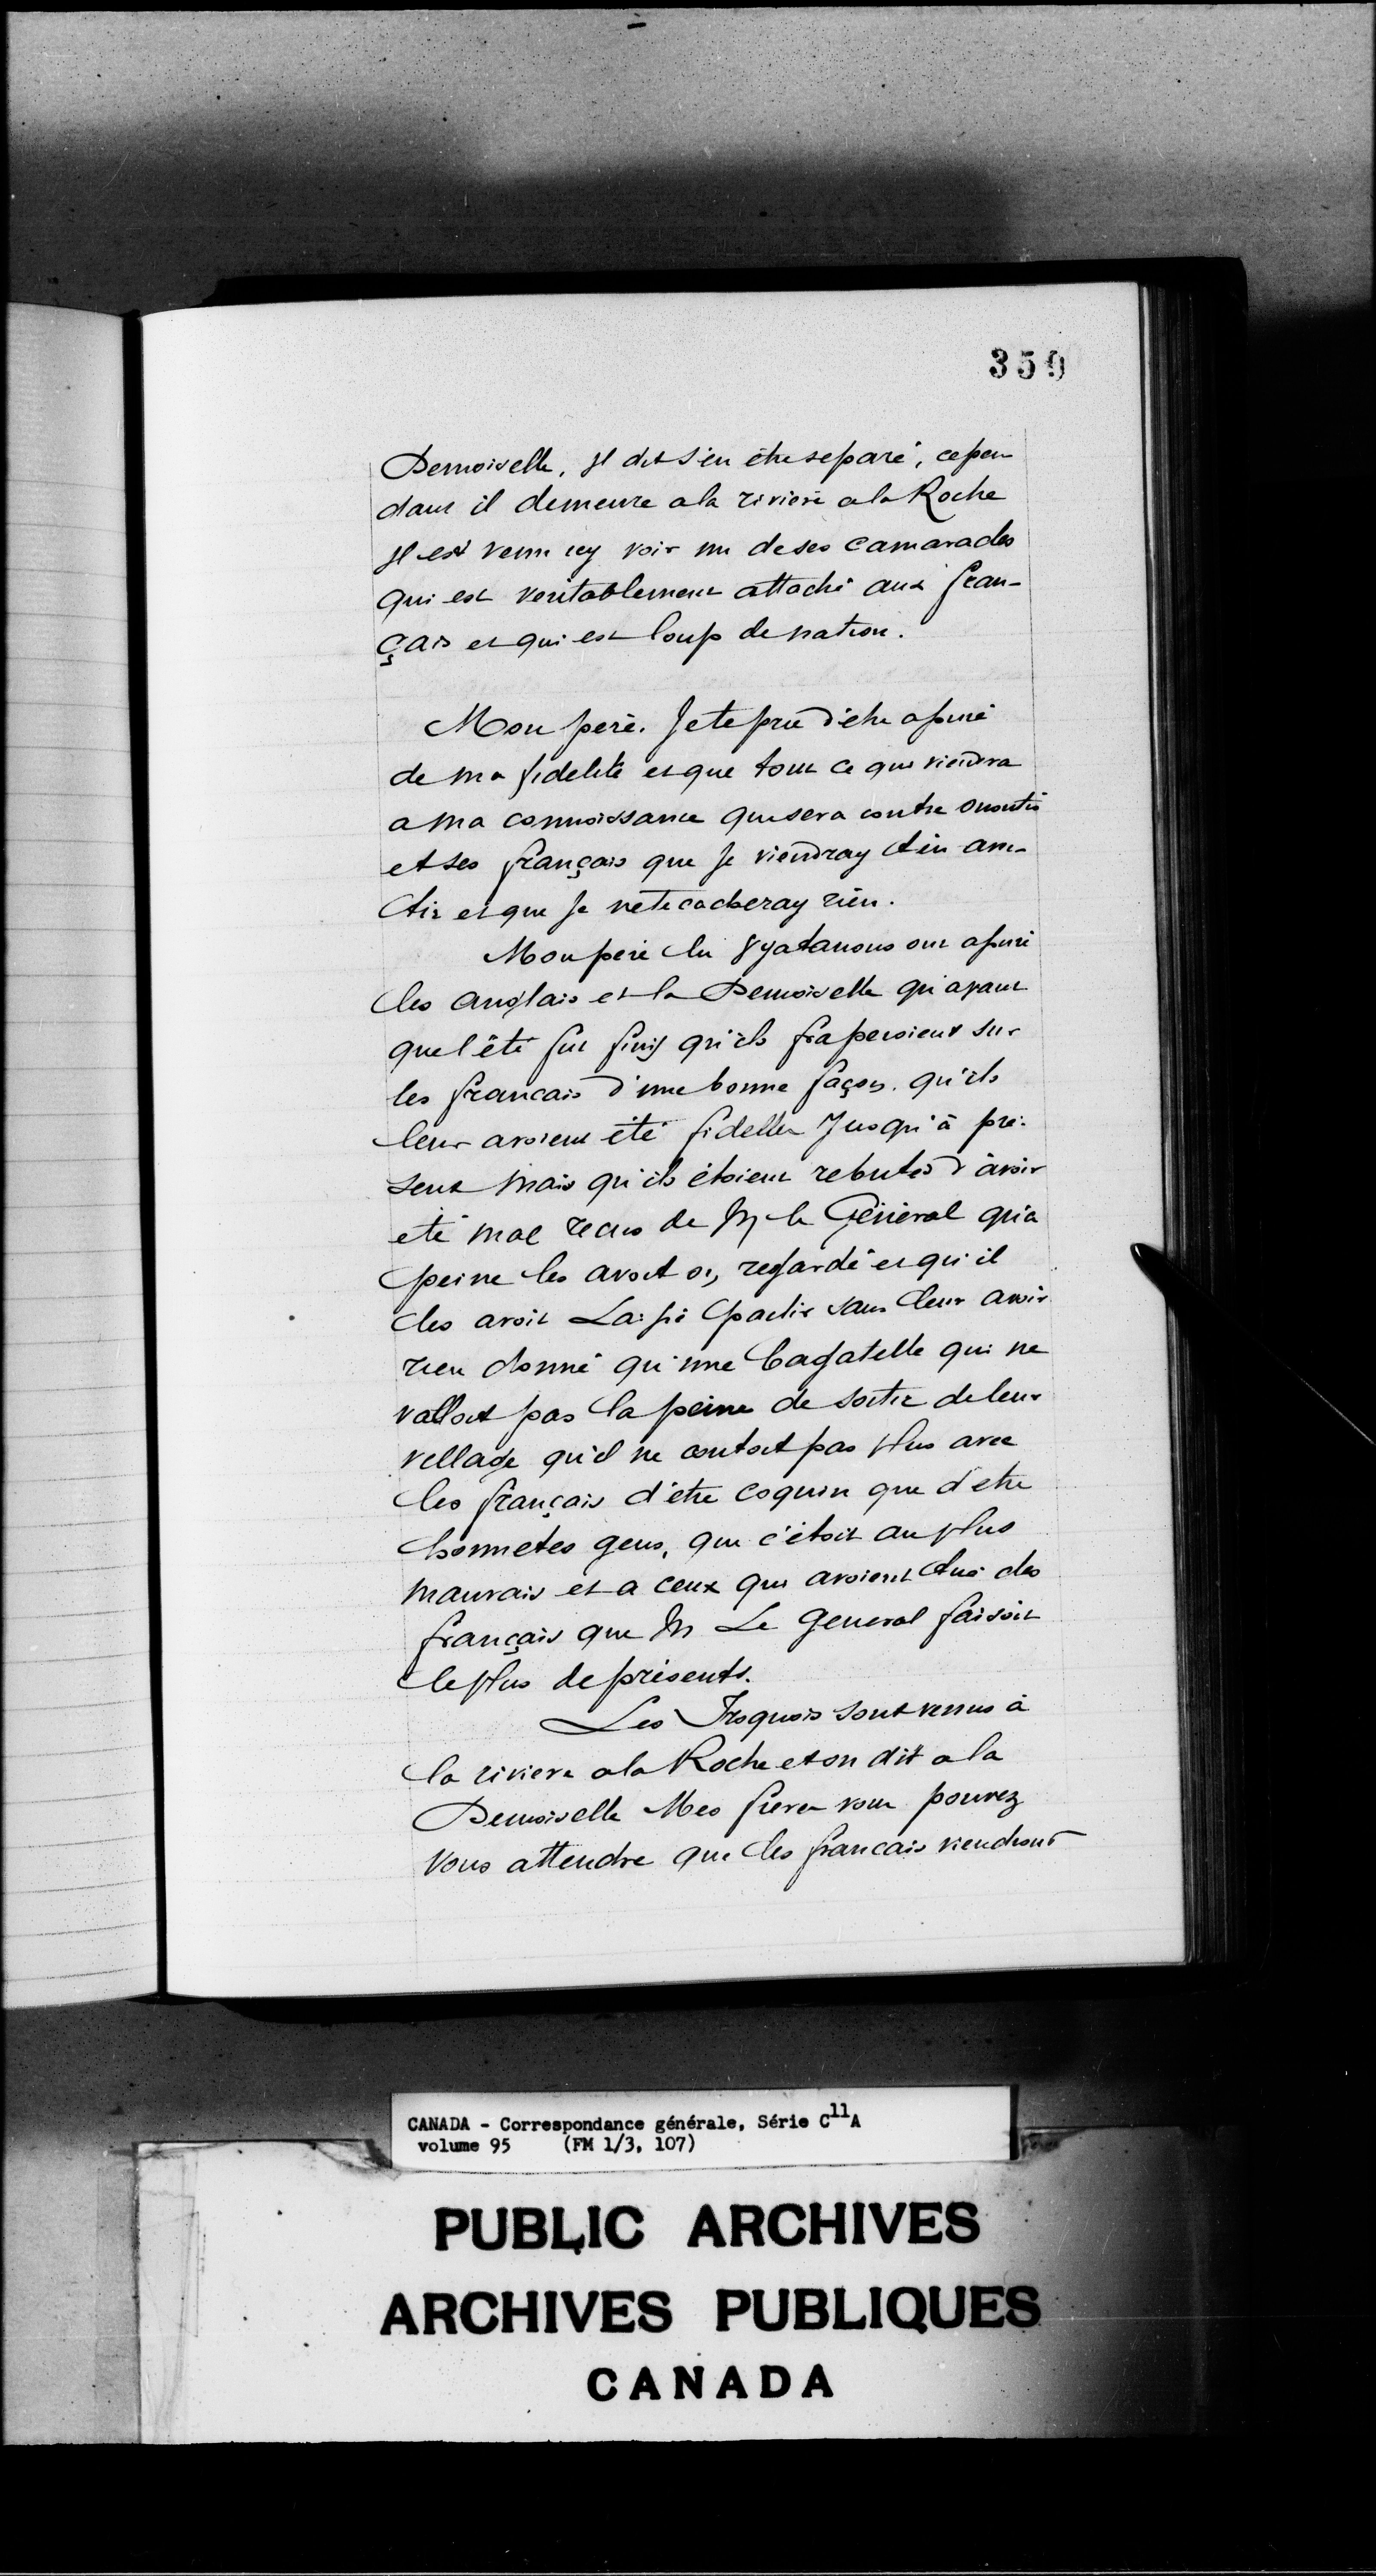 359
Demoiselle, Il dit s'en être separé, cepen
dant il demeure a la riviere a la Roche
Il est venu icy voir un de ses camarades
qui est veritablement attaché aux fran-
çais et qui est loup de nation.
Mon pere. Je te prie d'être assuré
de ma fidelité et que tout ce qui viendra
a ma connoissance qui sera contre onontio
et ses français que Je viendray t'en aver-
tir et que Je ne te cacheray rien.
Mon pere les 8yatanons ont assuré
les anglais et la Demoiselle qu'avant
que l'été fut finis qu'ils fraperoient sur
les francais d'une bonne façon. qu'ils
leur avoient été fidelles Jusqu'à pre-
sent mais qu'ils étoient rebutés d'avoir
eté mal recus de M le Géneral qu'a
peine les avoit , regardé et qu'il
les avoit Laissé partir sans leur avoir
rien donné qu'une bagatelle qui ne
valloit pas la peine de sortir de leur
village qu'il ne coutoit pas plus avec
les français d'etre coquin que d'etre
honnetes gens, que c'étoit au plus
mauvais et a ceux qui avoient tué des
français que M Le General faisoit
le plus de présents.
Les Iroquois sont venus à
la riviere a la Roche et on dit a la
Demoiselle Mes freres vous pouvez
vous attendre que les francais viendront
CANADA - Correspondance générale, Série C11A
volume 95 (FM 1/3, 107)
PUBLIC ARCHIVES
ARCHIVES PUBLIQUES
CANADA